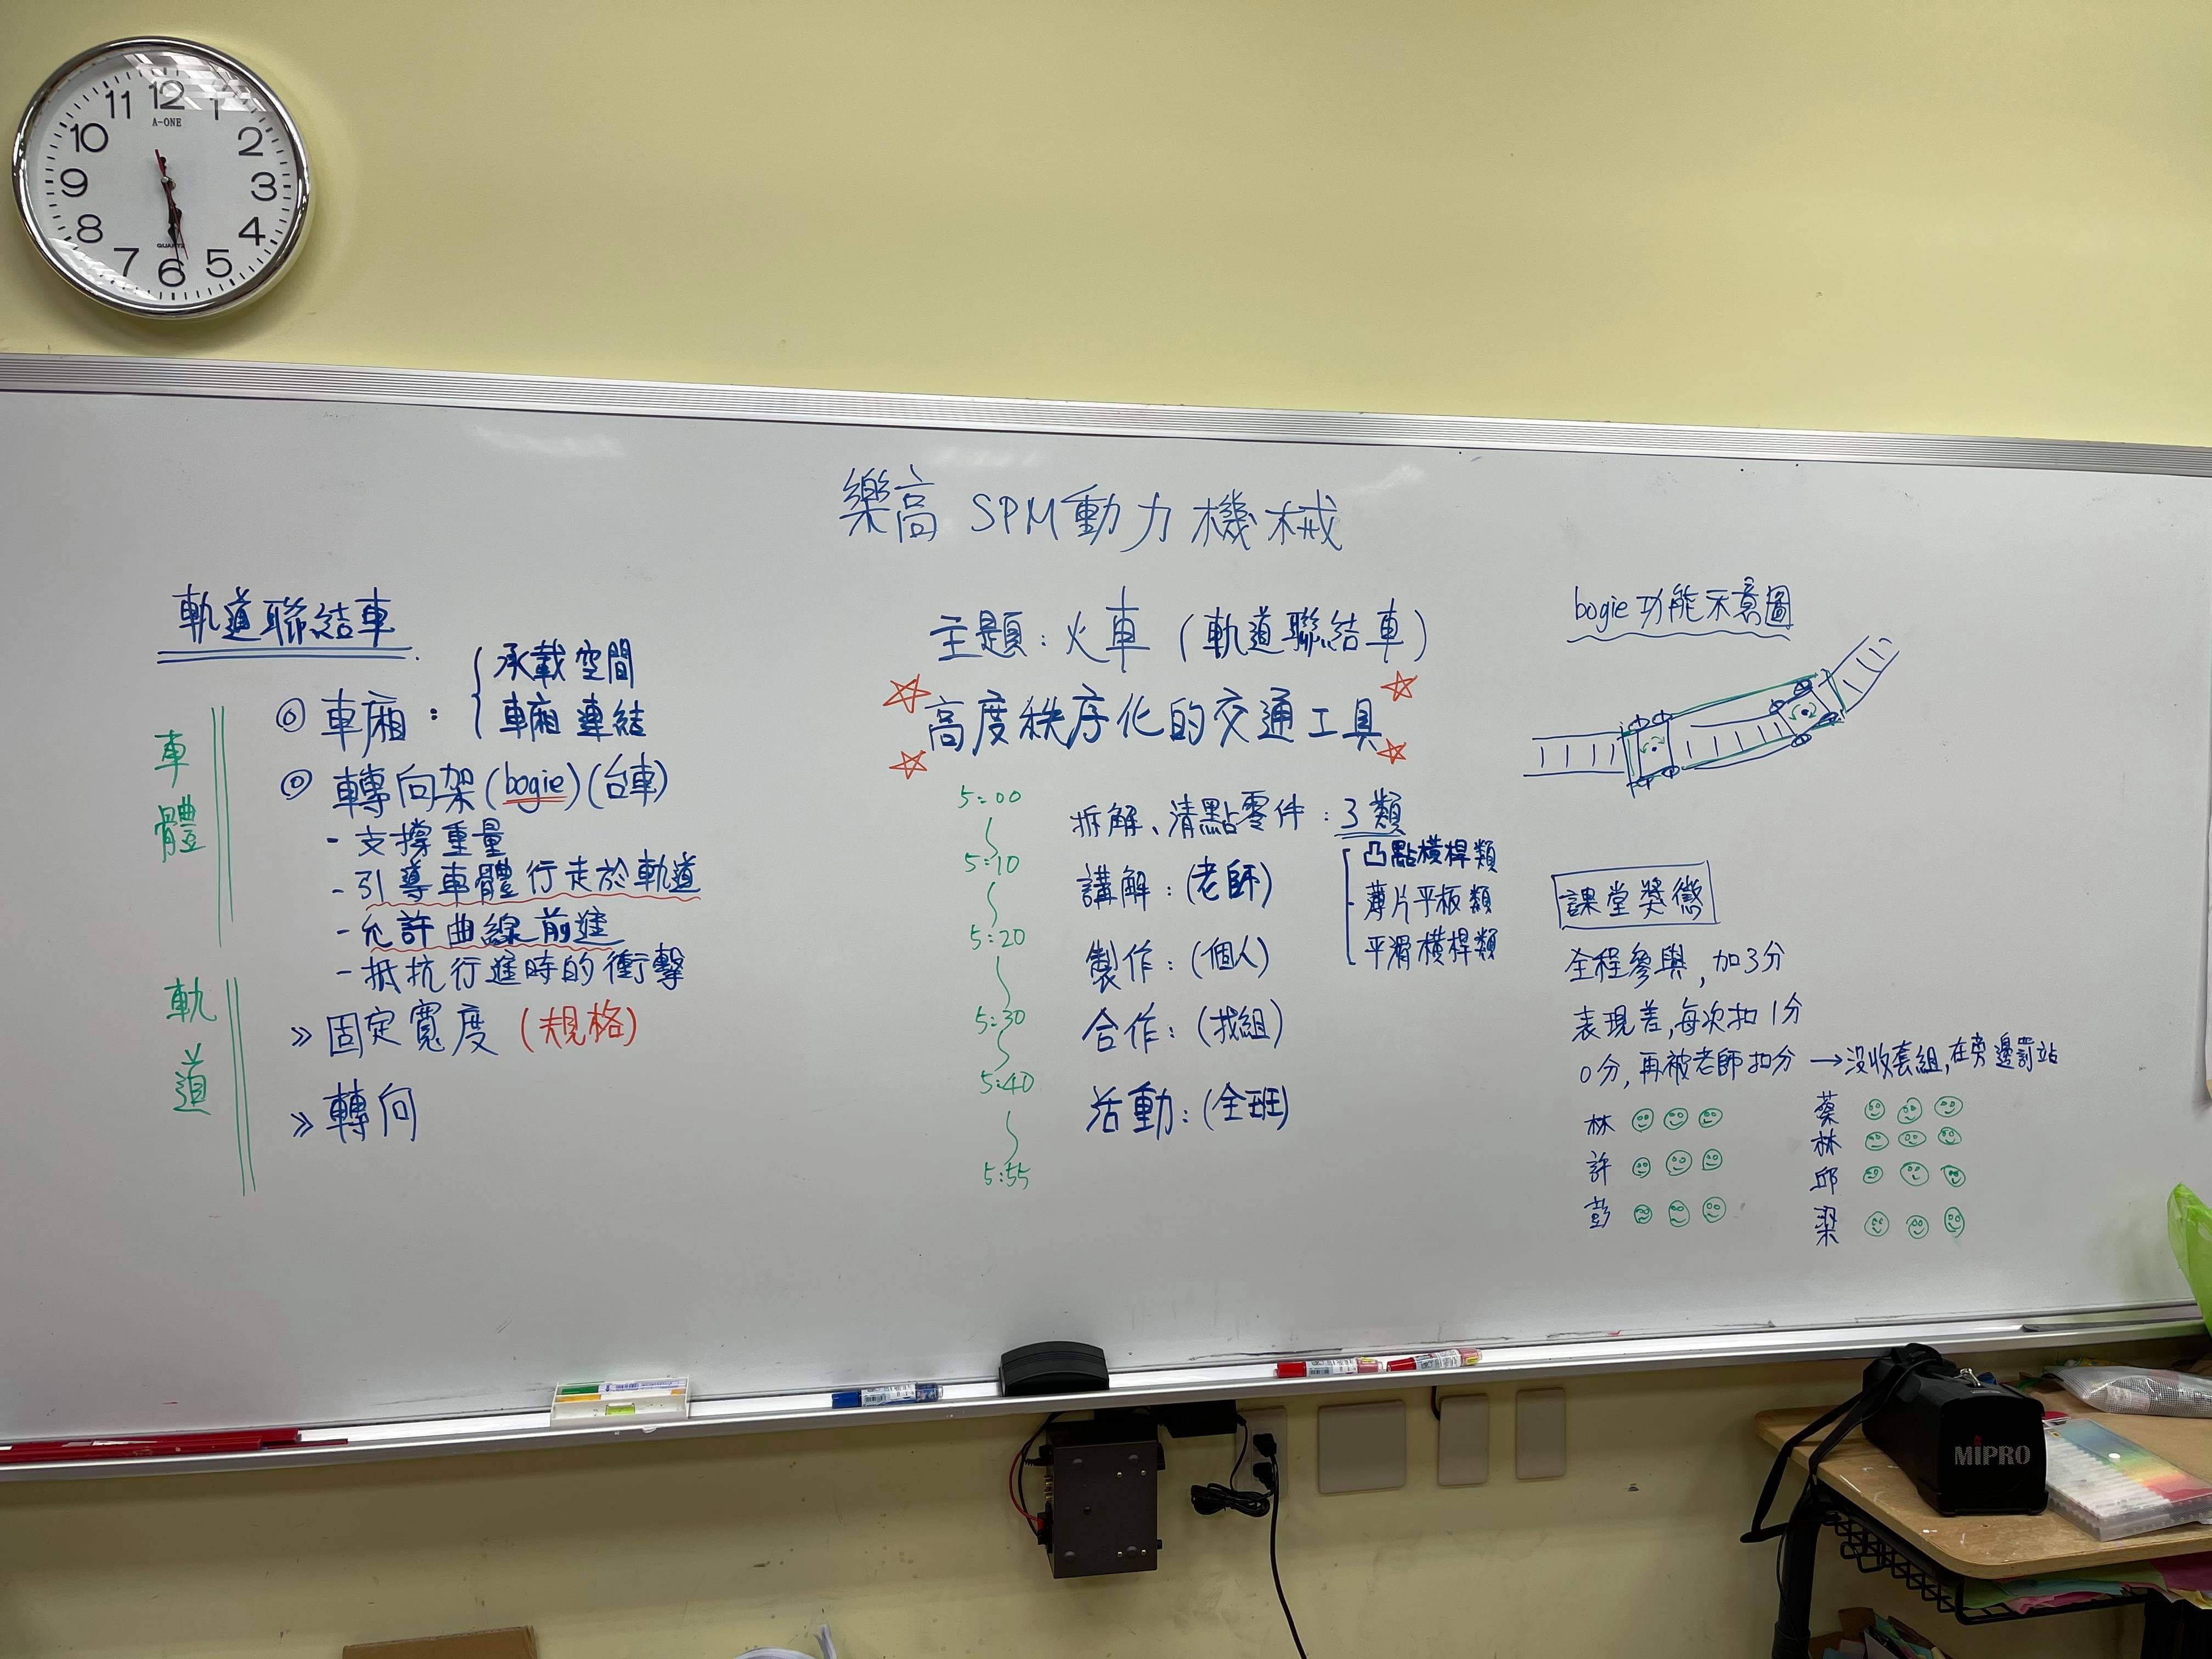 11 12 1
10 2
9 3
8 4
7 6 5
A-ONE
QUARTZ
樂高 SPM動力機械
軌道聯結車
車體
◎ 車廂：
承載空間
車廂連結
◎ 轉向架(bogie)(台車)
- 支撐重量
- 引導車體行走於軌道
- 允許曲線前進
- 抵抗行進時的衝擊
軌道
» 固定寬度(規格)
» 轉向
主題：火車(軌道聯結車)
高度秩序化的交通工具
5:00
拆解、清點零件：3類
凸點橫桿類
薄片平板類
平滑橫桿類
5:10
講解：(老師)
5:20
製作：(個人)
5:30
合作：(找組)
5:40
活動：(全班)
5:55
bogie功能示意圖
課堂獎懲
全程參與，加3分
表現差，每次扣1分
0分，再被老師扣分 → 沒收套組，在旁邊罰站
林
許
彭
蔡
林
邱
梁
MIPRO